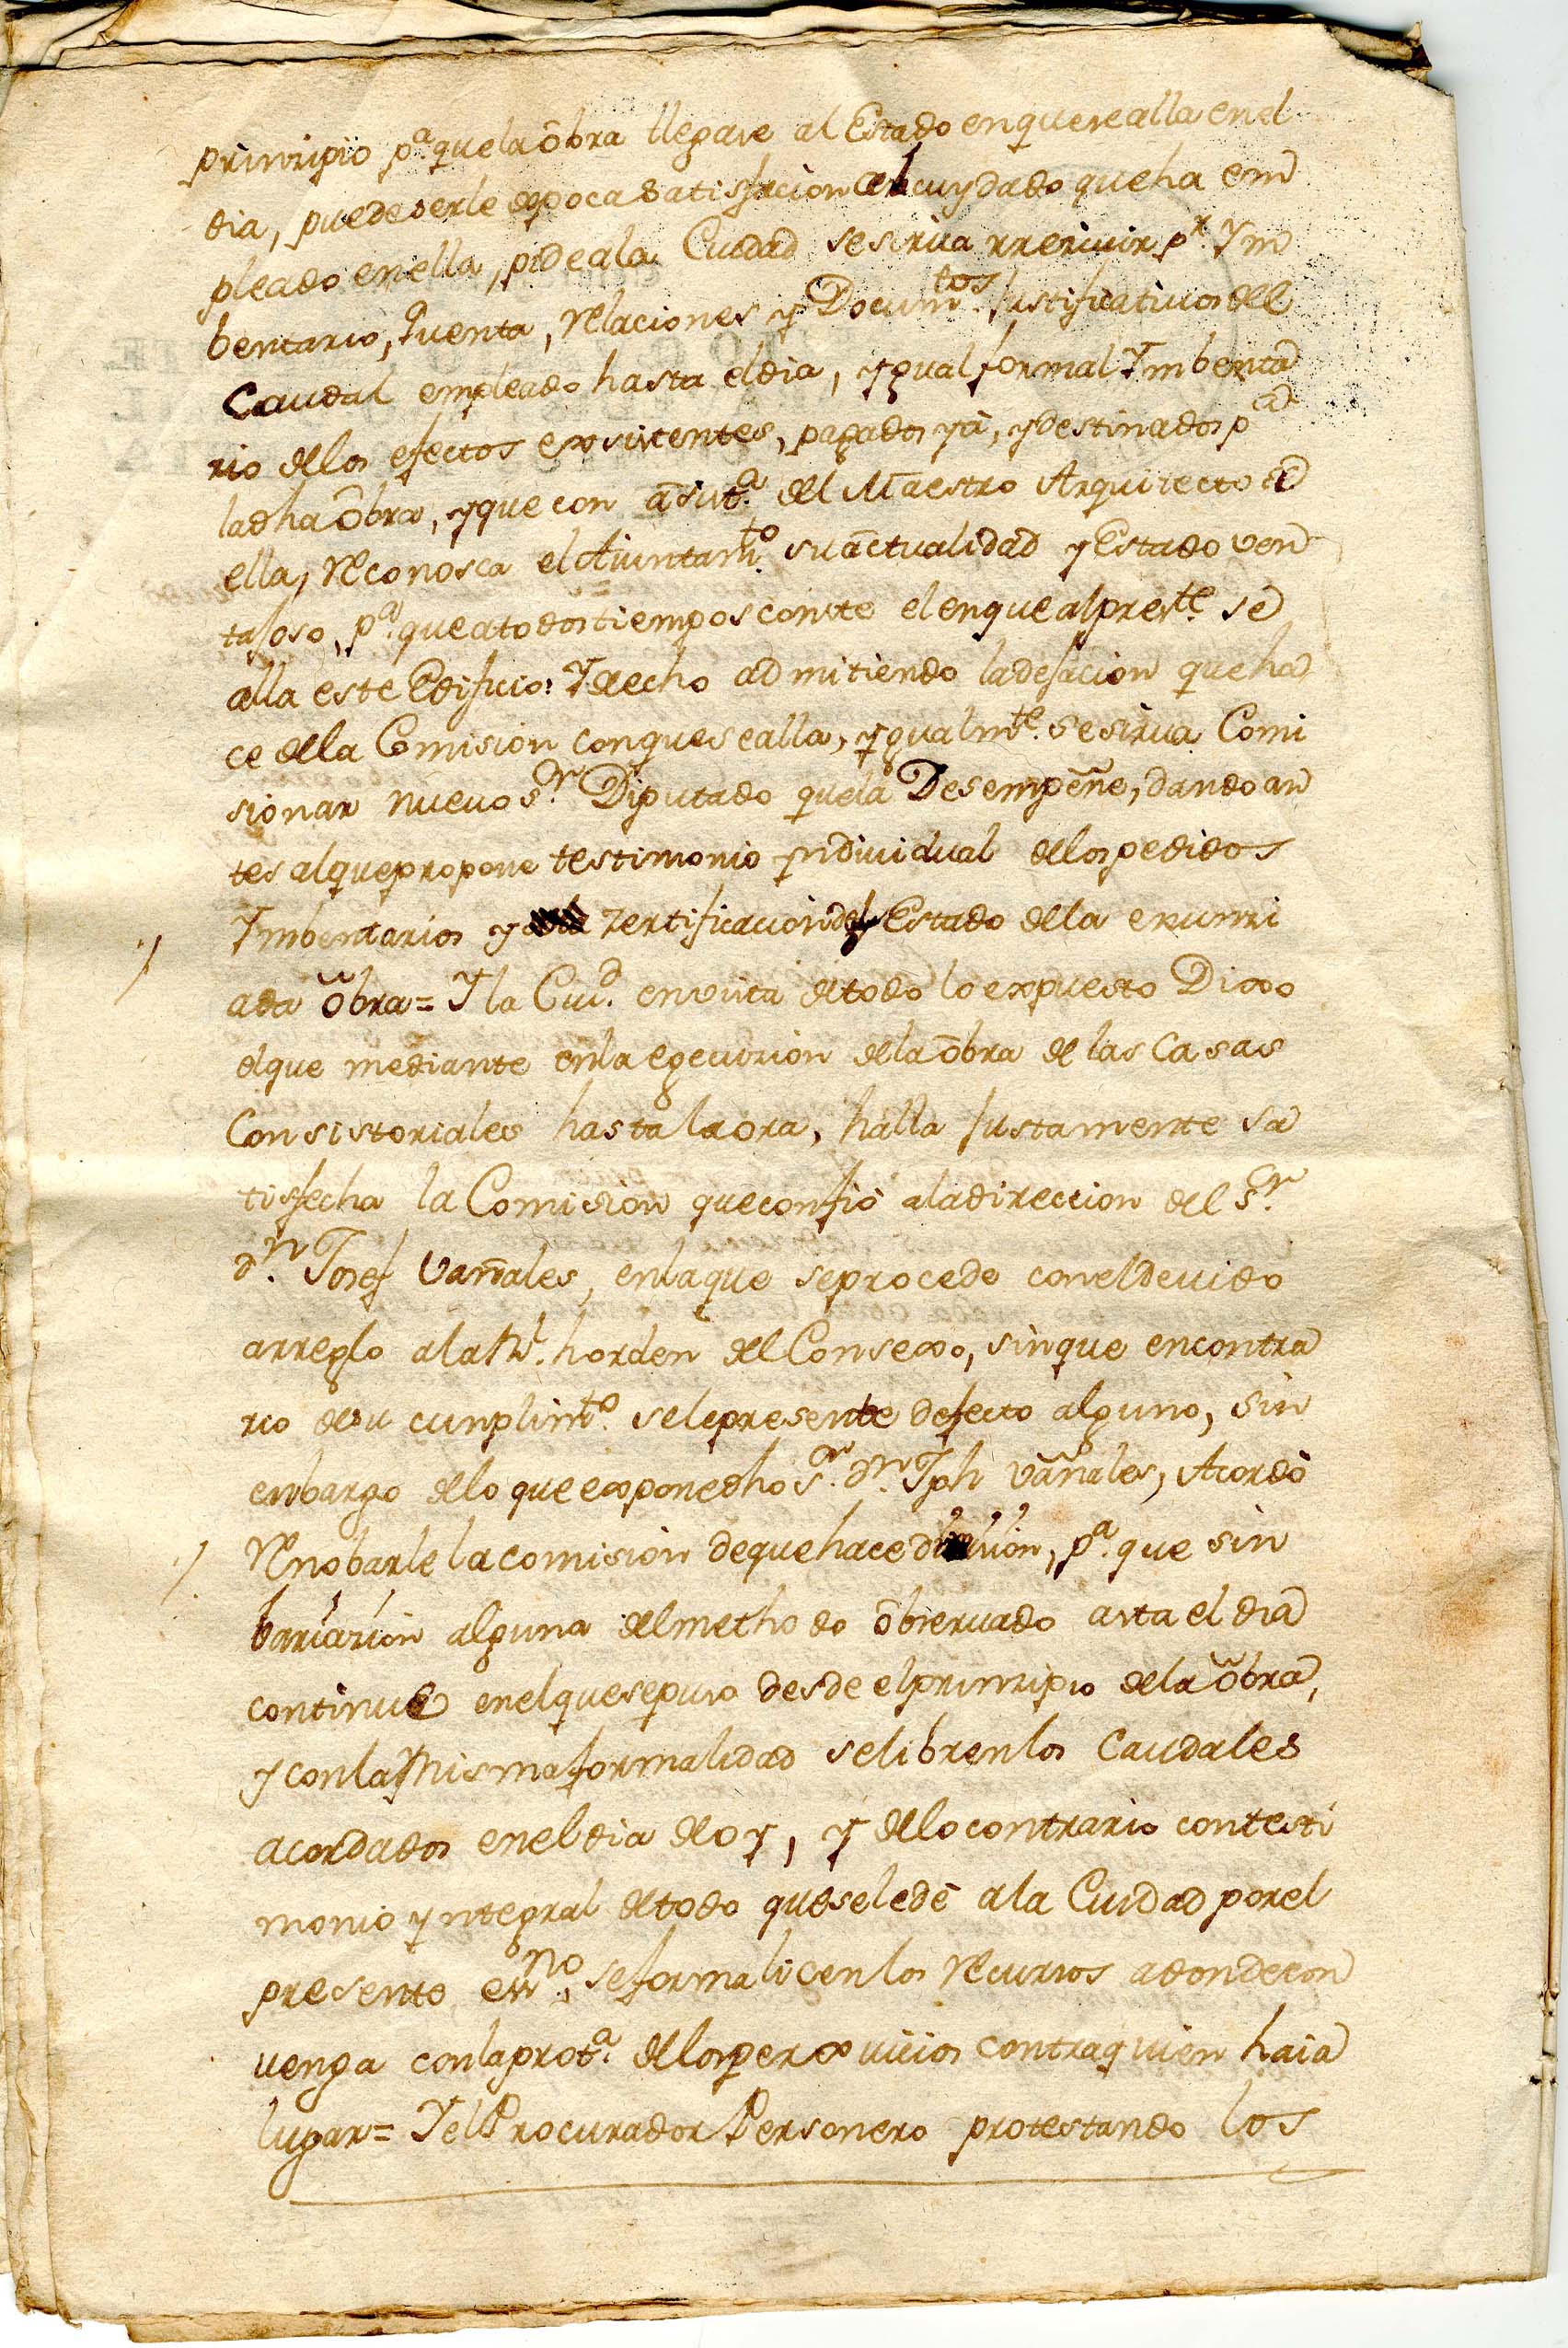 prinzipio p.ª que la obra llegase al Estado en que se alla en el
dia, puede serle de poca satisfacion el cuydado que ha em
pleado en ella, pide a la Ciudad se sirva rrezivir p.r Ym
bentario, Quenta, Relaciones y Docum.tos Justificativos del
Caudal empleado hasta el dia, ygual formal Ymbenta
rio de los efectos exsistentes, pagados yá, y destinados p.ª
la dha obra, y que con asist.ª del Maestro Arquitecto de
ella, Reconosca el Aiuntam.to su actualidad y Estado ven
tajoso, p.ª que a todos tiempos conste el en que al pres.te se
alla este Edificio: Y echo admitiendo la dejacion que ha
ce de la Comision con que se alla, ygualm.te se sirva Comi
sionar nuevo S.r Diputado que la Desempeñe, dando an
tes al que propone testimonio yndividual de los pedidos
Ymbentarios y zertificacion del Estado de la enunzi
ada obra = Y la Ciud. en vista de todo lo expuesto Dixo
el que mediante en la egecuzion de la obra de las Casas
Consistoriales hasta la ora, halla Justamente sa
tisfecha la Comision que confió a la direccion del S.r
d.n Josef Vañales, en la que se procede con el devido
arreglo a la Rl. horden del Consexo, sin que en contra
rio de su cunplim.to se le presente defecto alguno, sin
enbargo de lo que expone dho S.r d.n Jph Vañales, Acordó
Renobarle la comision de que hace dimision, p.ª que sin
bariazion alguna del methodo observado asta el dia
continue en el que se puso desde el prinzipio de la obra,
y con la misma formalidad se libren los Caudales
acordados en el dia de oy, y de lo contrario con testi
monio yntegral de todo que se le dé a la Ciudad por el
presente esn.no, se formalicen los Recursos a donde con
venga con la prot.ª de los perxuicios contra quien haia
lugar = Y el Procurador Personero protestando los